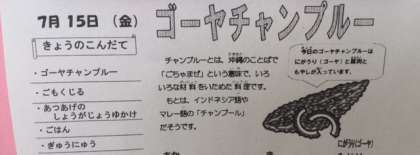 7月15日（金）
ゴーヤチャンプルー
きょうのこんだて
・ゴーヤチャンプルー
・ごもくじる
・あつあげの
しょうがじょうゆかけ
・ごはん
・ぎゅうにゅう
チャンプルーとは、沖縄のことばで
「ごちゃまぜ」という意味で、いろ
いろな材料をいためた料理です。
もとは、インドネシア語や
マレー語の「チャンプール」
だそうです。
今日のゴーヤチャンプルーは
にがうり（ゴーヤ）と豚肉と
もやしが入っています。
にがうり(ゴーヤ)